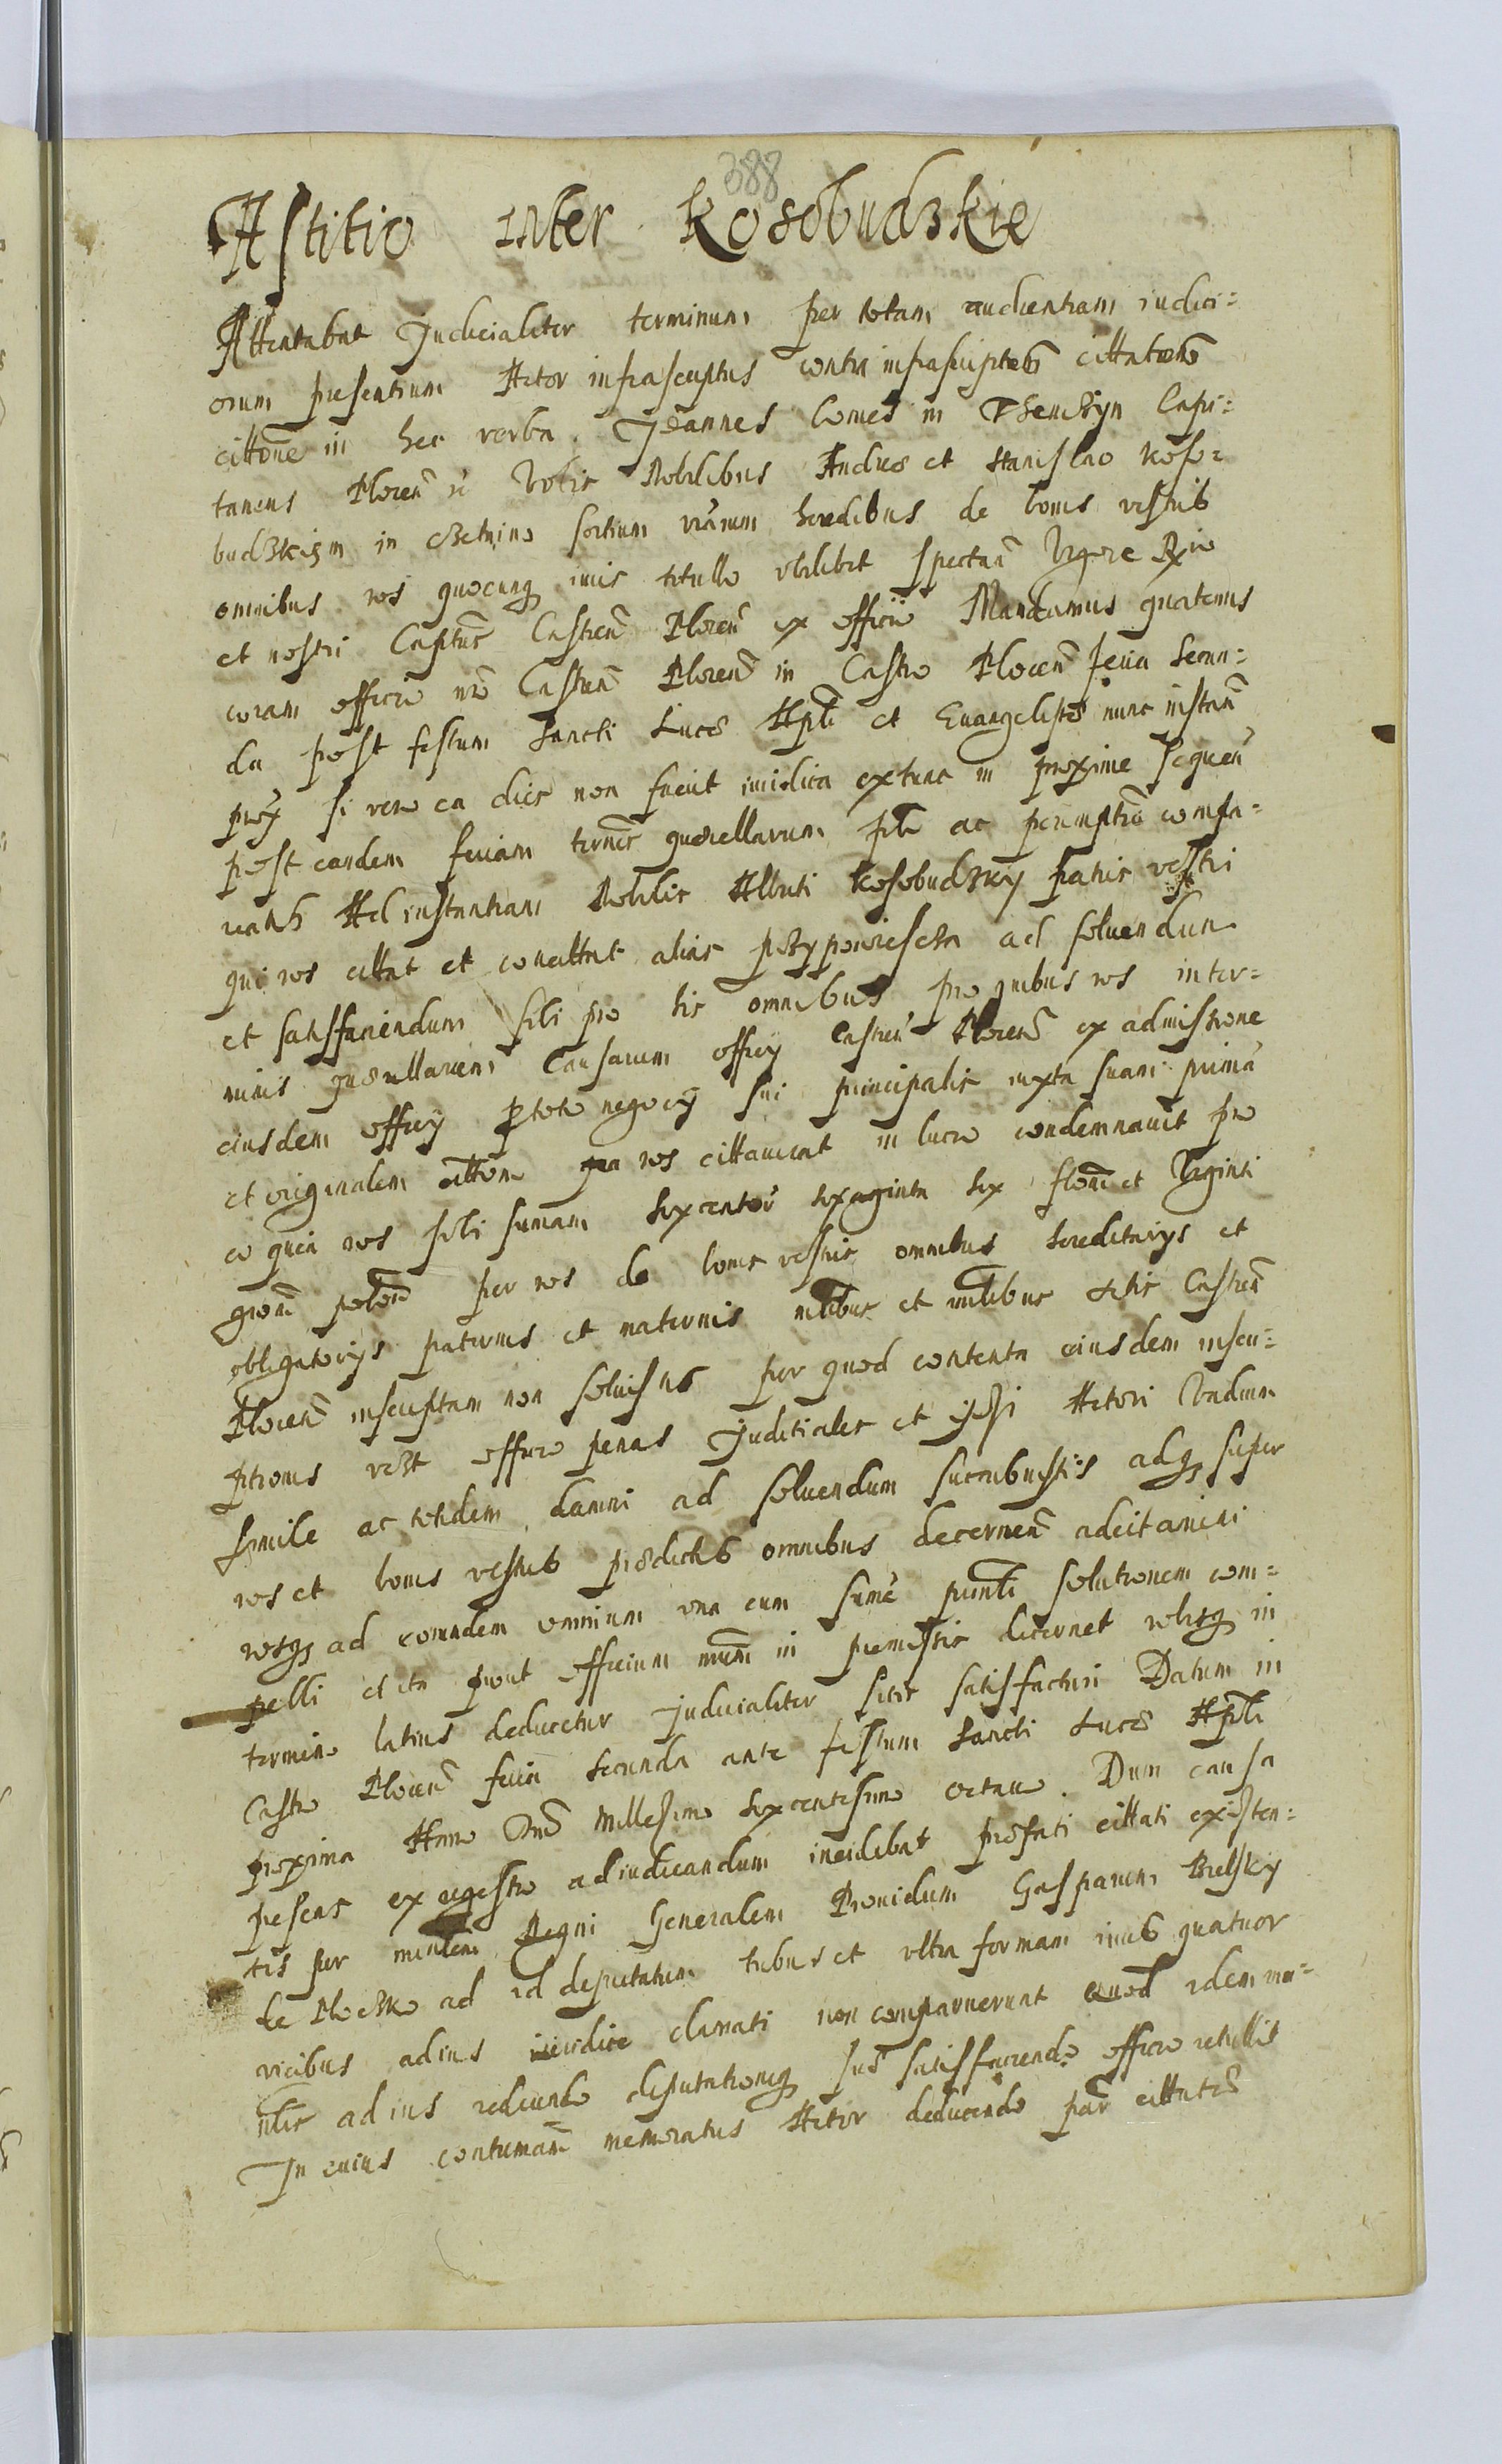 388
Astitio inter Kosobudzkie
Attentabat Judicialiter terminum per totam audientiam iudici=
orum presentium Actor infrascriptus contra infrascriptos cittatos
cittone in hec verba. Joannes Comes in Thenczyn Capi=
taneus Plocen Vobis Nobilibus Andreæ et Stanislao Koso=
budzkiem in Czetnino sortium vrarum heredibus de bonis vestris
omnibus vos quocunq iuris titullo vbilibet spectan Vigore Rgio
et nostri Captus Castren Plocen ex officio Mandamus quatenus
coram officio nro Castren Plocen in Castro Plocen feria secun=
da post festum Sancti Lucæ Apli et Euangelistæ nunc instan
prox si vero ea dies non fuerit iuridica extunc in proxime sequen
post eandem feriam ternis quærellarum plr ac peremptrie compa=
reatis Ad instantiam Nobilis Alberti Kosobudzky fratris vestri
qui vos cittat et concittat alias przypowiescza ad soluendum
et satisfaciendum sibi pro his omnibus pro quibus vos in ter=
minis quærellarum Causarum officy Castren Plocen ex admissione
eiusdem officy pro toto negocy sui principalis iuxta suam primam
et originalem cittone qua vos cittauerat in lucro condemnauit pro
eo quia vos sibi sumam sexcentor sexaginta sex floni et Viginti
grom polon per vos de bonis vestris omnibus hereditarys et
obligatorys paternis et maternis milibus et imilibus Actis Castren
Plocen inscriptam non soluistis per quod contenta eiusdem inscri=
ptionis vczt officio penas Juditiales et ipsi Actori Vadium
simile ac totidem damni ad soluendum succubuistis adq super
vos et bonis vestris prædictis omnibus decernen adcitamini
vosq ad eorundem omnium vna cum sume printi solutionem com=
pelli et ita prout officium nrum in premissis decernet vobisq in
termino latius deducetur Judicialiter sitis satisfacturi Datum in
Castro Plocen feria secunda ante festum Sancti Lucæ Apli
proxima Anno Dni Millesimo sexcentesimo octauo. Dum causa
presens ex regestro adiudicandum incidebat præfati cittati existen=
tes per minlem Regni Generalem Prouidum Gasparem Bielsky
de Ploczko ad id deputatum tribus et vltra formam iuris quatuor
vicibus ad ius iuridice clamati non comparuerunt Quod idem mi=
nlis ad ius redeundo deputationiq suæ satisfaciendo officio retullit
In cuius contumam memoratus Actor deducendo par cittatos